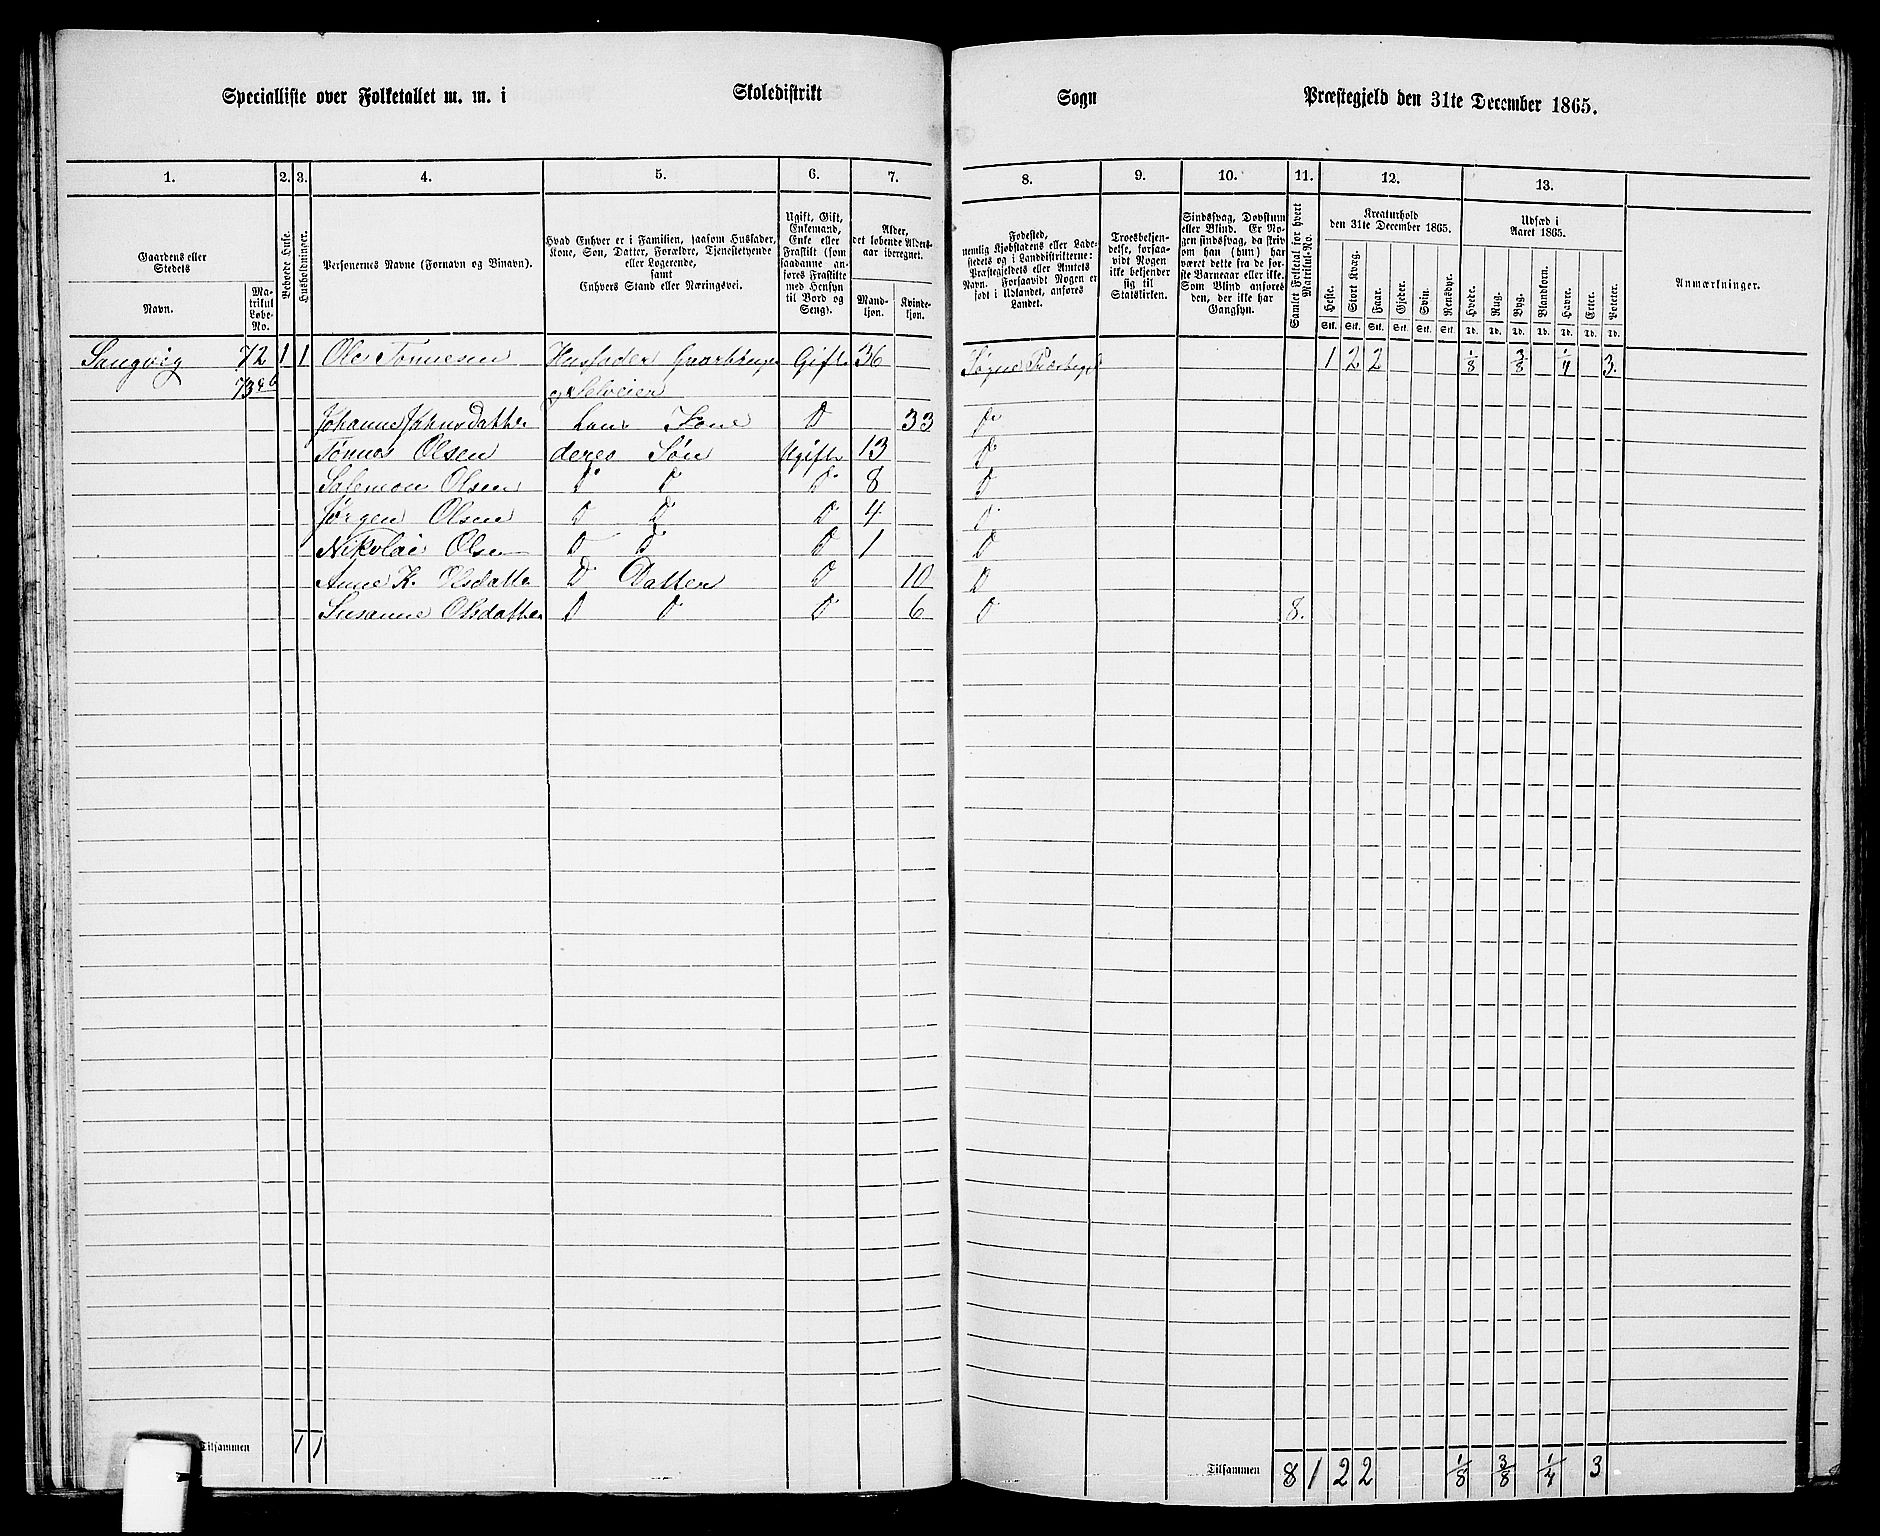 Specialliste over Folketallet m. m. i Skoledistrikt Sogn Præstegjeld den 31te December 1865.
1. 2. 3. 4. 5. 6. 7. 8. 9. 10. 11. 12. 13.
Gaardens eller Stedets
Navn.
Matrikul Løbe-No.
Beboede Huse.
Husholdninger.
Personernes Navne (Fornavn og Binavn).
Hvad Enhver er i Familien, saasom Husfader, Kone, Søn, Datter, Forældre, Tjenestetyende eller Logerende,
samt
Enhvers Stand eller Næringsvei.
Ugift, Gift, Enkemand, Enke eller Fraskilt (som saadanne anføres Fraskilte med Hensyn til Bord og Seng).
Alder, det løbende Alders-aar iberegnet.
Mand-kjøn.
Kvinde-kjøn.
Fødested,
nemlig Kjøbstadens eller Ladestedets og i Landdistrikterne: Præstegjeldets eller Amtets Navn. Forsaavidt Nogen er født i Udlandet, anføres Landet.
Troesbekjendelse, forsaavidt Nogen ikke bekjender sig til Statskirken.
Sindssvag, Døvstum eller Blind. Er Nogen sindssvag, da skriv om han (hun) har været dette fra de første Barneaar eller ikke. Som Blind anføres den, der ikke har Gangsyn.
Samlet Folketal for hvert Matrikul-No.
Kreaturhold den 31te December 1865.
Heste. Stort Kvæg. Faar. Gjeder. Svin. Rensdyr.
Stk. Stk. Stk. Stk. Stk. Stk.
Udsæd i Aaret 1865.
Hvede. Rug. Byg. Blandkorn. Havre. Erter. Poteter.
Td. Td. Td. Td. Td. Td. Td.
Anmærkninger.
Sangvig 72 1 1 Ole Tønnesen Husfader Gaardbruger Gift 36 Søgne Præstegjd 1 2 2 1/8 3/8 1/4 3.
73 a b og Selveier
Johanne Johnsdatter hans Kone D 33 D
Tønnes Olsen deres Søn Ugift 13 D
Salemon Olsen D D D 8 D
Jørgen Olsen D D D 4 D
Nikolai Olsen D D D 1 D
Anne K. Olsdatter D Datter D 10 D
Susanne Olsdatter D D D 6 D 8.
Tilsammen 1 1 Tilsammen 8 1 2 2 1/8 3/8 1/4 3